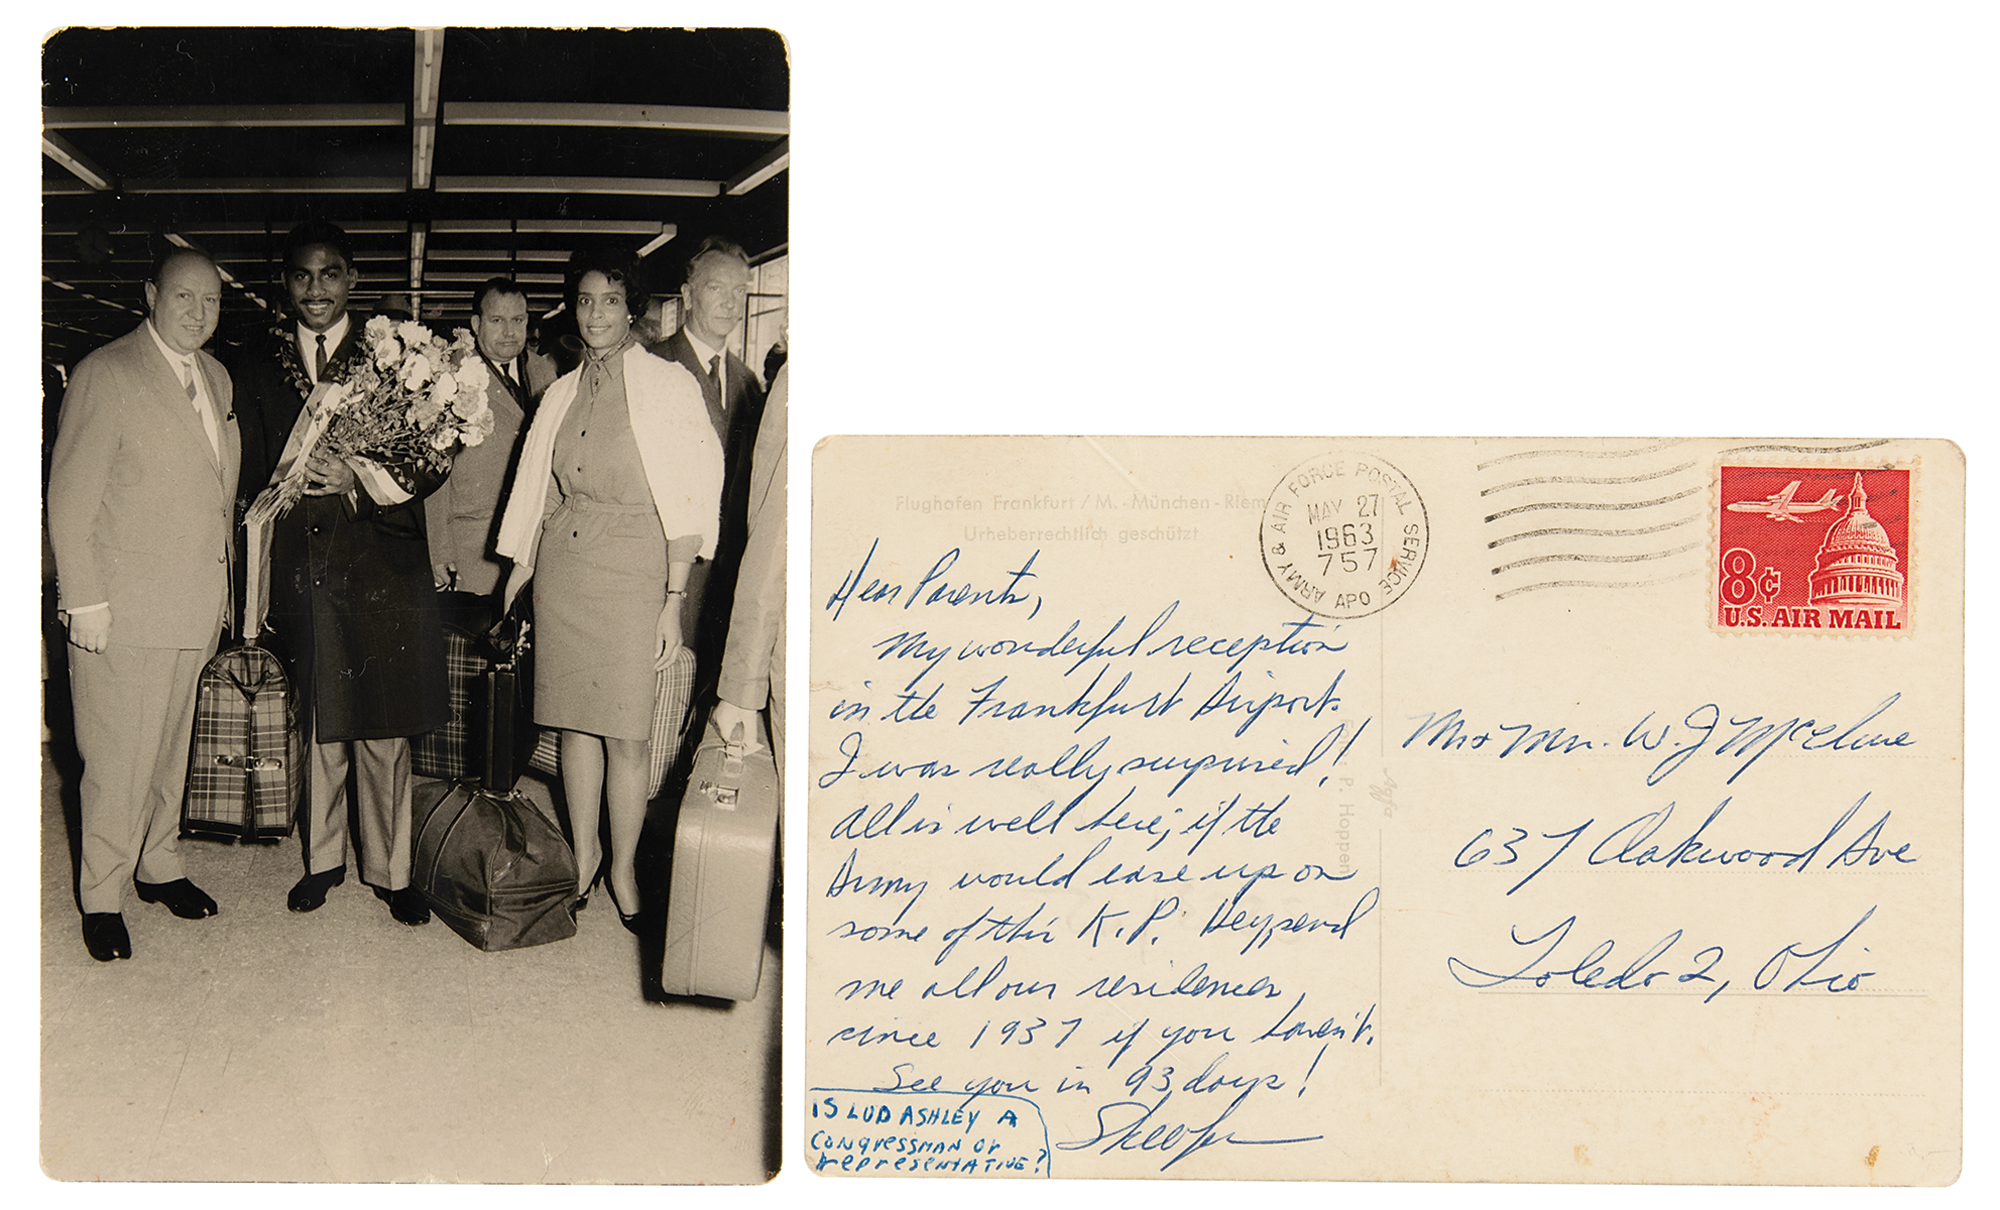 Flughafen Frankfurt / M. - München - Riem
Urheberrechtlich geschützt
ARMY & AIR FORCE POSTAL SERVICE
MAY 27
1963
757
APO
8¢
U.S. AIR MAIL
Dear Parents,
My wonderful reception
in the Frankfurt Airport.
I was really surprised!
All is well here; if the
Army would ease up on
some of this K.P. Hey, send
me all our residences
since 1937 if you haven't.
See you in 93 days!
IS LUD ASHLEY A
CONGRESSMAN OR
REPRESENTATIVE?
Mr & Mrs. W. J McClure
637 Oakwood Ave
Toledo 2, Ohio
Agfa
P. Hoppen